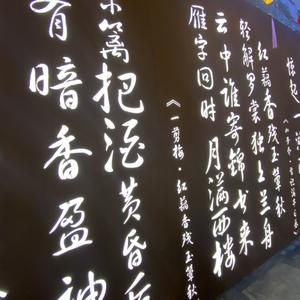 惊起一
红藕香残玉簟秋
轻解罗裳独上兰舟
云中谁寄锦书来
雁字回时 月满西楼
《一剪梅·红藕香残玉簟秋》
东篱把酒黄昏后
有暗香盈袖